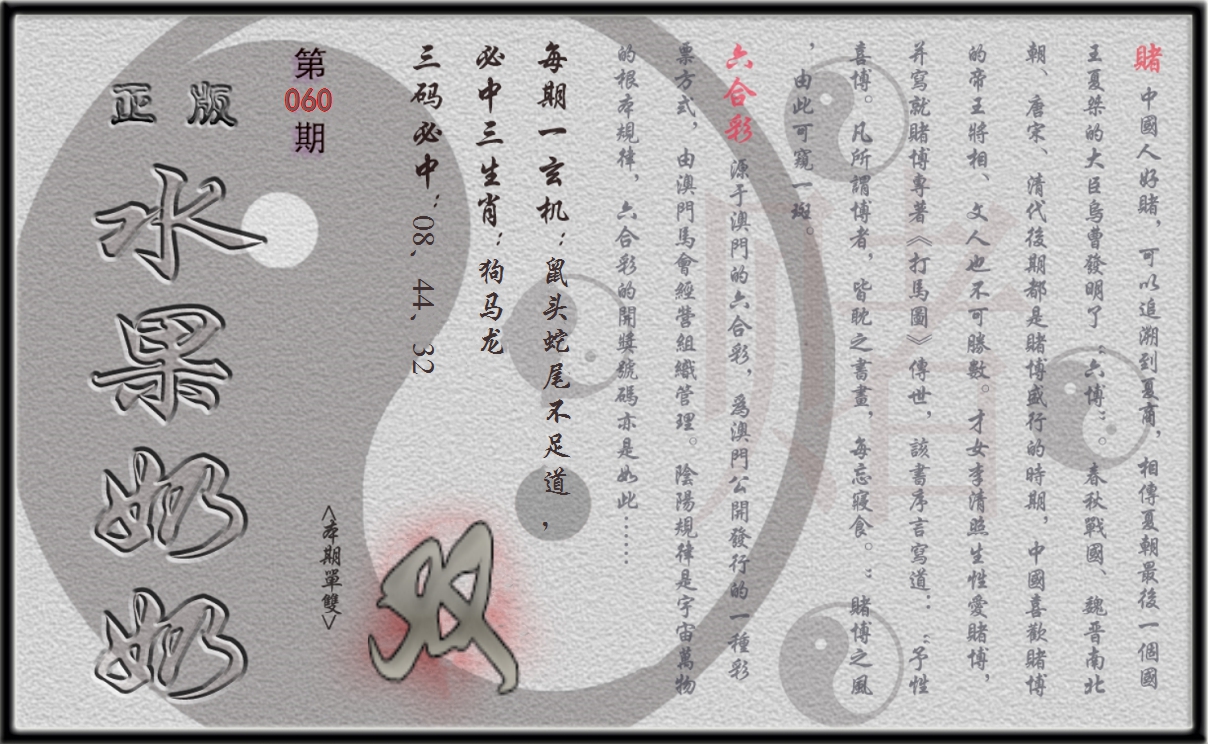 賭 中國人好賭，可以追溯到夏商，相傳夏朝最後一個國
王夏桀的大臣烏曹發明了“六博”。春秋戰國、魏晉南北
朝、唐宋、清代後期都是賭博盛行的時期，中國喜歡賭博
的帝王將相、文人也不可勝數。才女李清照生性愛賭博，
并寫就賭博專著《打馬圖》傳世，該書序言寫道：“予性
喜博。凡所謂博者，皆耽之書畫，每忘寢食。：賭博之風
，由此可窺一斑。
六合彩 源于澳門的六合彩，爲澳門公開發行的一種彩
票方式，由澳門馬會經營組織管理。陰陽規律是宇宙萬物
的根本規律，六合彩的開獎號碼亦是如此……
每期一玄机：鼠头蛇尾不足道，
必中三生肖：狗马龙
三码必中：08、44、32
双
<本期單雙>
第
060
期
正版
水果奶奶